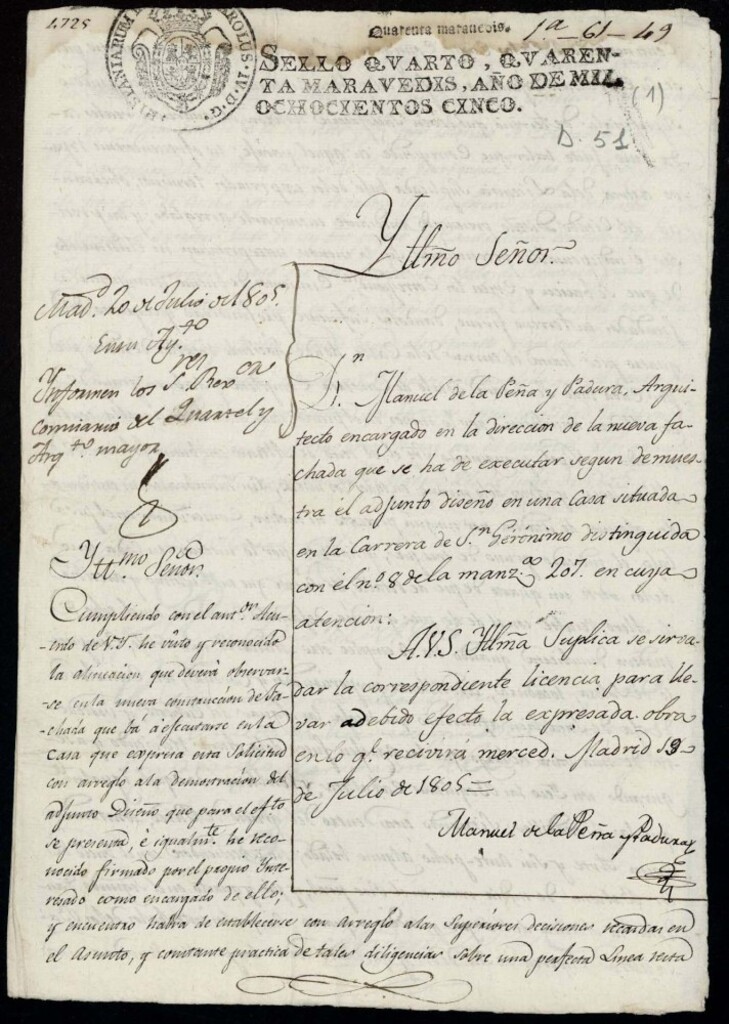 1.725
Quarenta maravedis.
1ª-61-49
HISPANIARUM
CAROLUS·IV·D·G·
SELLO QVARTO, QVAREN-
TA MARAVEDIS, AÑO DE MIL
OCHOCIENTOS CINCO.
(1)
D. 51
Yllmo Señor.
Mad.d 20 de Julio de 1805.
En su Ay.to
Ynformen los S.res Rex.on
Comisario del Quartel y
Arq.to mayor
D.n Manuel de la Peña y Padura, Arqui-
tecto encargado en la direccion de la nueva fa-
chada que se ha de executar segun demues-
tra el adjunto diseño en una Casa situada
en la Carrera de S.n Gerónimo distinguida
con el nº 8 de la manz.ª 207. en cuya
atencion:
A.V.S. Yllma Suplica se sirva
dar la correspondiente licencia para lle-
var adebido efecto la expresada obra
en lo q.e recivirá merced. Madrid 19
de Julio de 1805=
Manuel de la Peña y Padura
Ytt.mo Señor.
Cumpliendo con el ant.or Acu-
-erdo de V.Y. he visto y reconocido
la alineacion que deverá observar-
-se en la nueva construccion de Fa-
chada que bá á efecutarse en la
Casa que expresa esta Solicitud
con arreglo a la demostracion del
adjunto Diseño que para el efto
se presenta, é igualm.te he reco-
nocido firmado por el propio Ynte-
resado como encargado de ello;
y encuentro habra de establecerse con arreglo a las Superiores decisiones recaidas en
el Asunto, y constante practica de tales diligencias sobre una perfecta Linea recta